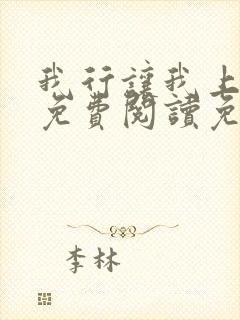 我行讓我上
免費閱讀免
李林